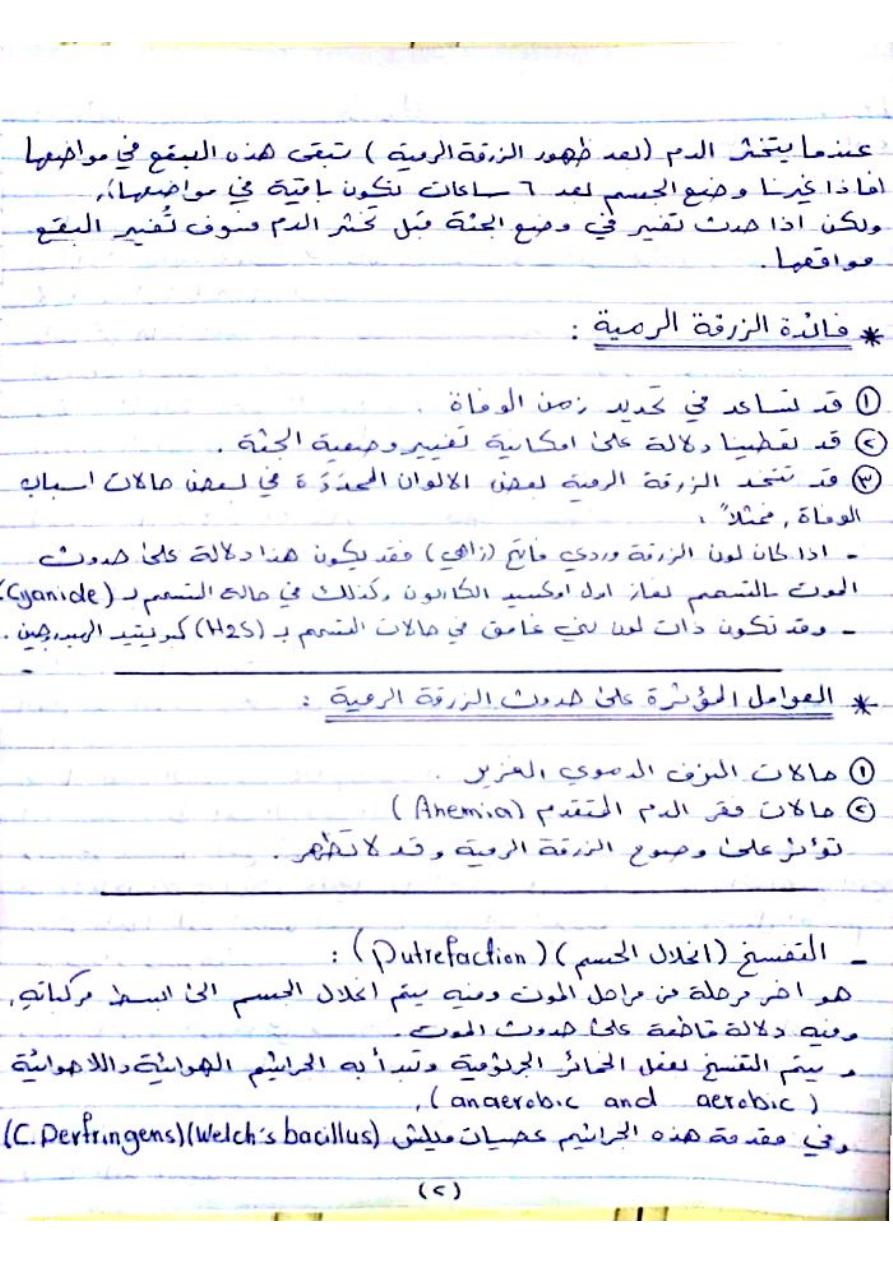 عندما يتخثر الدم (بعد ظهور الزرقة الرمية) تبقى هذه البقع في مواضعها
(فاذا غيرنا وضع الجسم بعد ٦ ساعات تكون باقية في مواضعها)،
ولكن اذا حدث تغير في وضع الجثة قبل تخثر الدم فسوف تُغير البقع
مواقعها.
* فائدة الزرقة الرمية :
① قد تساعد في تحديد زمن الوفاة .
② قد تعطينا دلالة على امكانية تغيير وضعية الجثة .
③ قد تتخذ الزرقة الرمية بعض الالوان المحدّدة في بعض حالات اسباب
الوفاة , فمثلاً ،
- اذا كان لون الزرقة وردي فاتح (زاهي) فقد يكون هذا دلالة على حدوث
الموت بالتسمم بغاز اول أوكسيد الكاربون وكذلك في حالة التسمم بـ (Cyanide).
- وقد تكون ذات لون بني غامق في حالات التسمم بـ (H2S) كبريتيد الهيدروجين .
* العوامل المؤثرة على حدوث الزرقة الرمية :
① حالات النزف الدموي الغزير .
② حالات فقر الدم المتقدم (Anemia)
تؤثر على وضوح الزرقة الرمية وقد لا تظهر .
- التفسخ (انحلال الجسم) (Putrefaction) :
هو اخر مرحلة من مراحل الموت وفيه يتم انحلال الجسم الى ابسط مركباته,
وفيه دلالة قاطعة على حدوث الموت .
و يتم التفسخ بفعل الخمائر الجرثومية وتبدأ به الجراثيم الهوائية واللاهوائية
(anaerobic and aerobic),
وفي مقدمة هذه الجراثيم عصيات ميلش (Welch's bacillus)(C.Perfringens)
(٢)